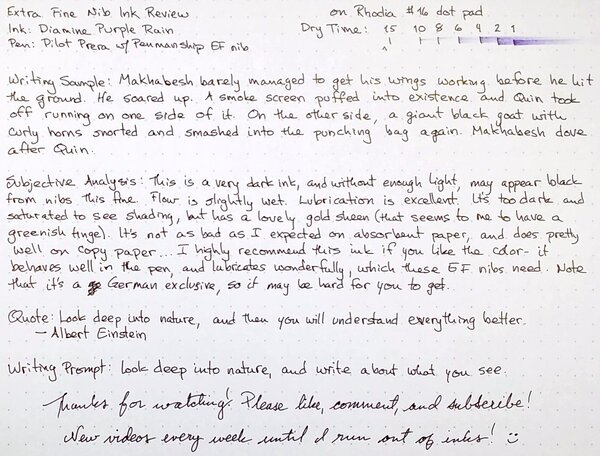 Extra Fine Nib Ink Review on Rhodia #16 dot pad
Ink: Diamine Purple Rain Dry Time: 15 10 8 6 4 2 1
Pen: Pilot Prera w/ Penmanship EF nib
Writing Sample: Makhabesh barely managed to get his wings working before he hit
the ground. He soared up. A smoke screen puffed into existence and Quin took
off running on one side of it. On the other side, a giant black goat with
curly horns snorted and smashed into the punching bag again. Makhabesh dove
after Quin.
Subjective Analysis: This is a very dark ink, and without enough light, may appear black
from nibs this fine. Flow is slightly wet. Lubrication is excellent. It's too dark and
saturated to see shading, but has a lovely gold sheen (that seems to me to have a
greenish tinge). It's not as bad as I expected on absorbent paper, and does pretty
well on copy paper... I highly recommend this ink if you like the color- it
behaves well in the pen, and lubricates wonderfully, which these EF nibs need. Note
that it's a German exclusive, so it may be hard for you to get.
Quote: Look deep into nature, and then you will understand everything better.
- Albert Einstein
Writing Prompt: Look deep into nature, and write about what you see.
Thanks for watching! Please like, comment, and subscribe!
New videos every week until I run out of inks! :)